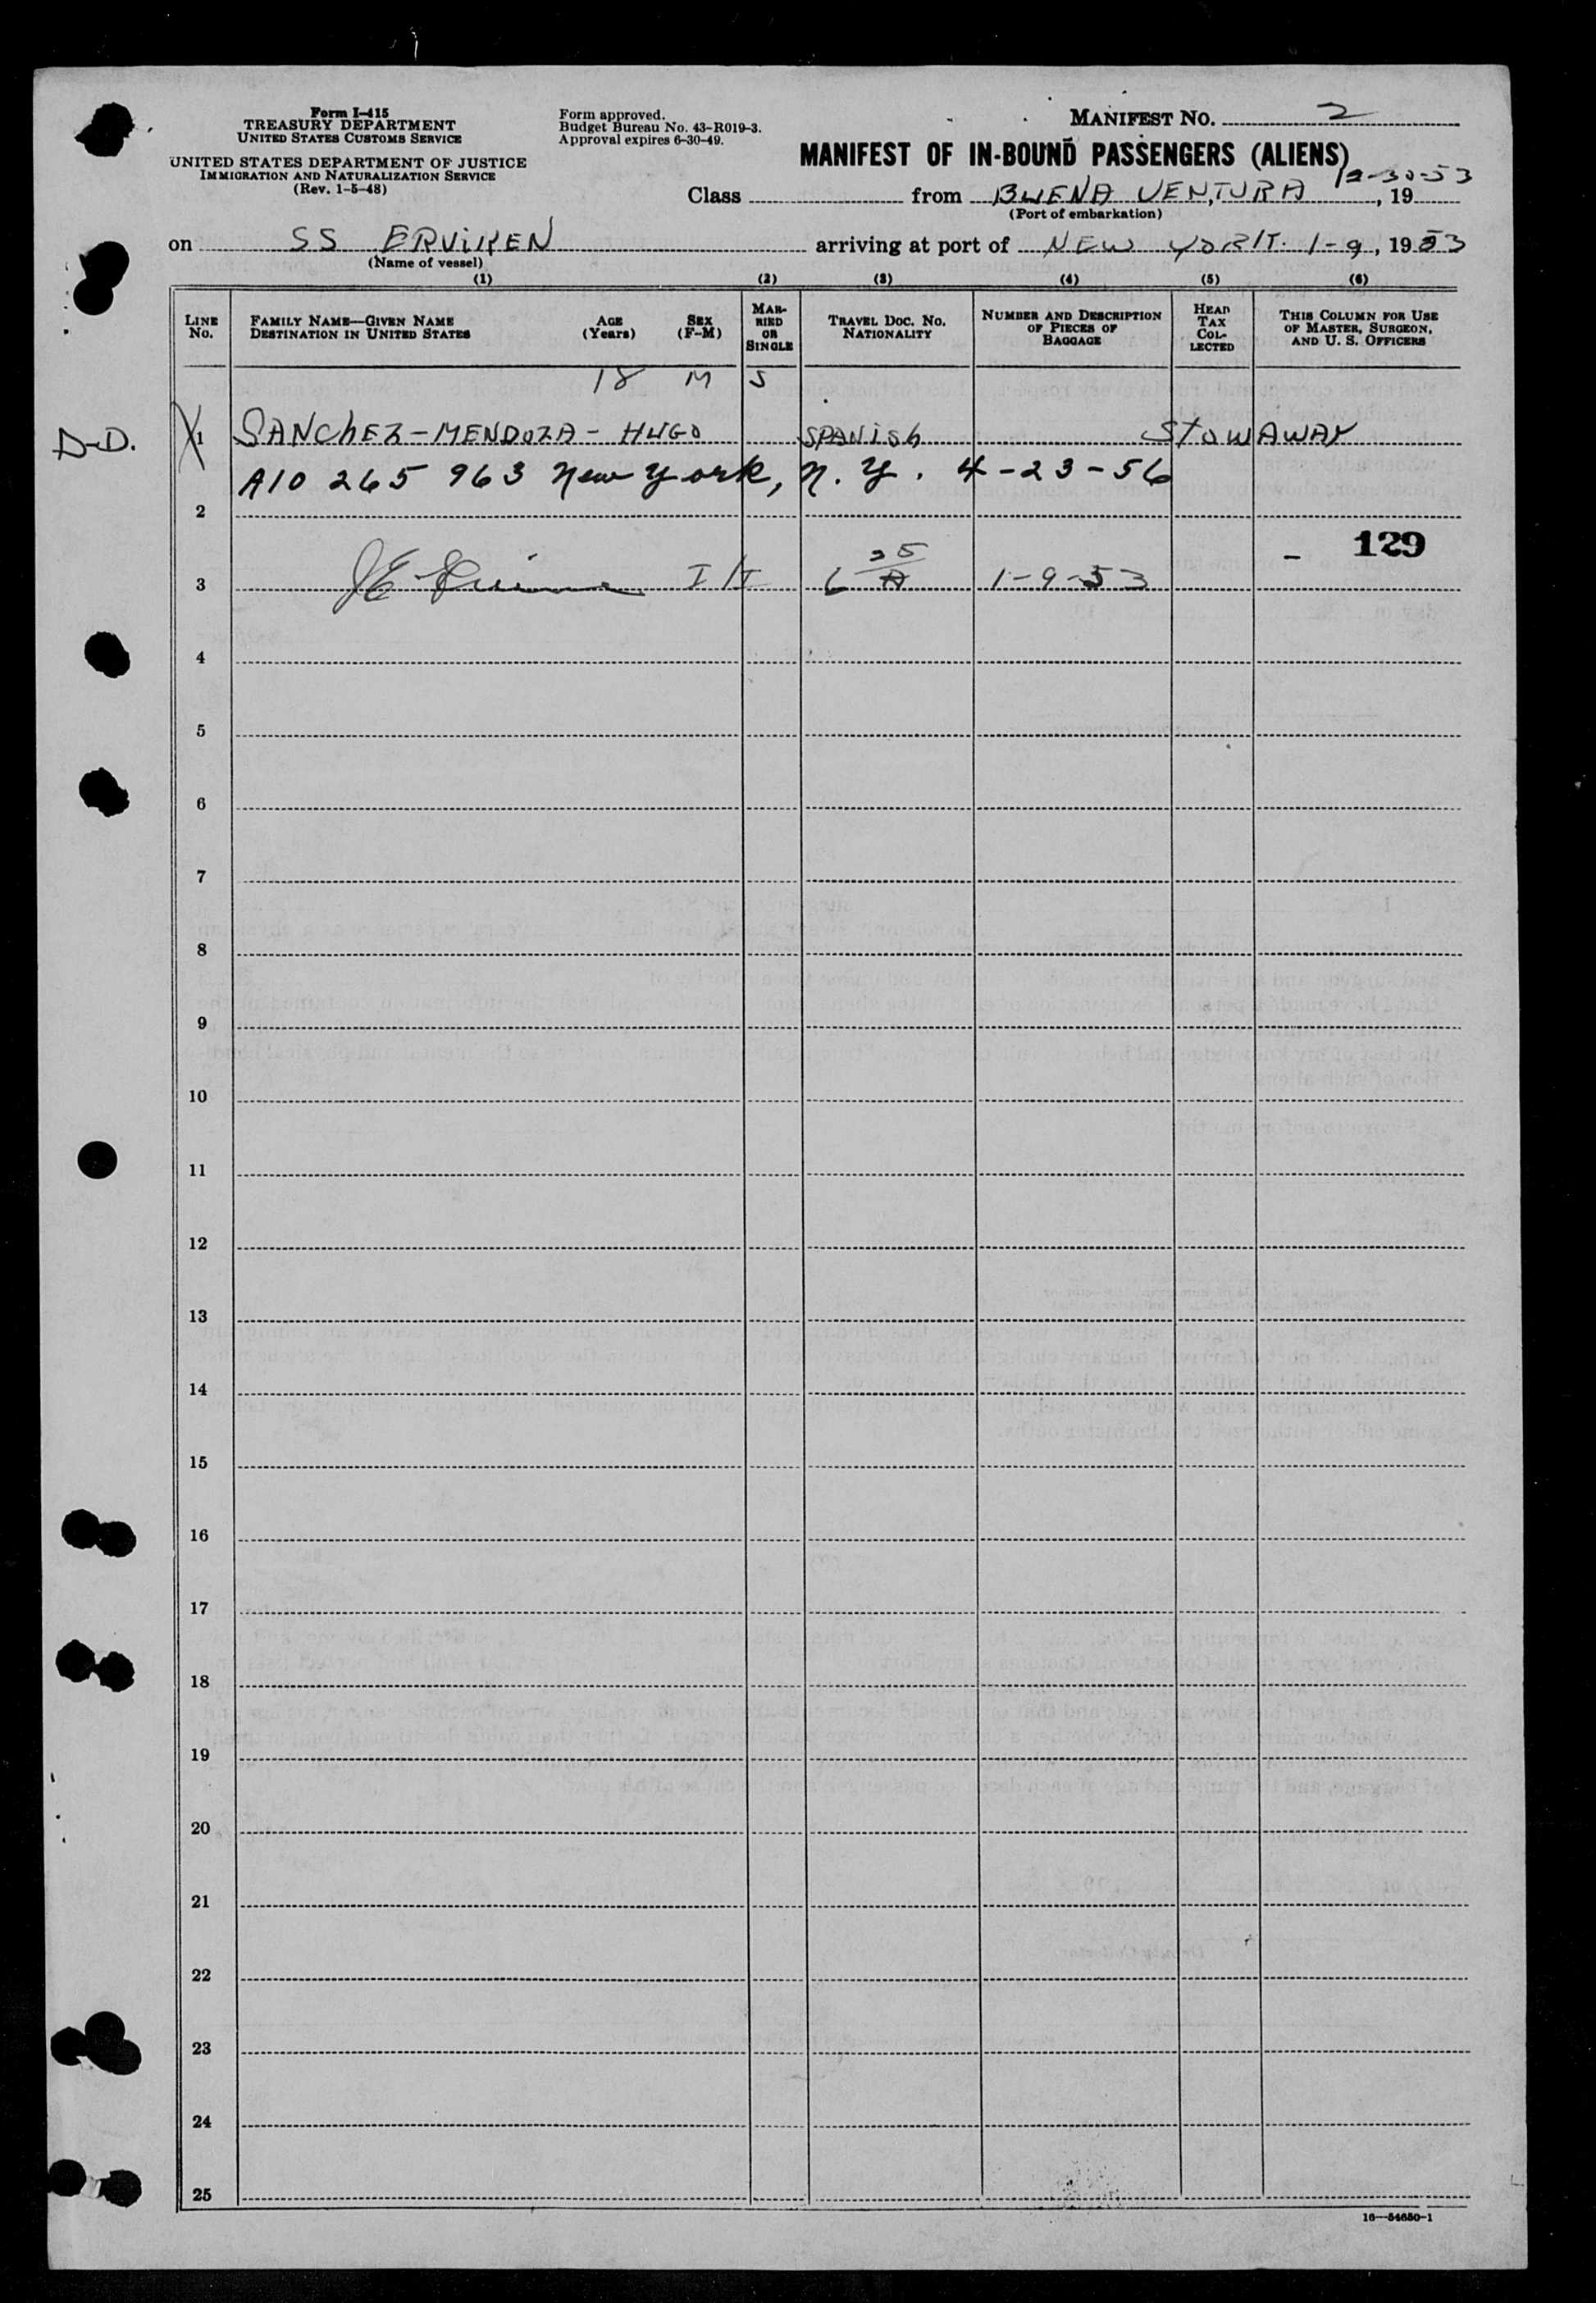 Form I-415
TREASURY DEPARTMENT
UNITED STATES CUSTOMS SERVICE
UNITED STATES DEPARTMENT OF JUSTICE
IMMIGRATION AND NATURALIZATION SERVICE
(Rev. 1-5-48)
Form approved.
Budget Bureau No. 43-R019-3.
Approval expires 6-30-49.
MANIFEST NO. 2
MANIFEST OF IN-BOUND PASSENGERS (ALIENS)
12-30-53
Class from BUENA VENTURA, 19
(Port of embarkation)
on SS ERVIKEN arriving at port of NEW YORK 1-9, 1953
(Name of vessel)
(1) (2) (3) (4) (5) (6)
LINE NO. FAMILY NAME—GIVEN NAME DESTINATION IN UNITED STATES AGE (Years) SEX (F-M) MARRIED OR SINGLE TRAVEL DOC. NO. NATIONALITY NUMBER AND DESCRIPTION OF PIECES OF BAGGAGE HEAD TAX COLLECTED THIS COLUMN FOR USE OF MASTER, SURGEON, AND U. S. OFFICERS
18 M S
D-D. X 1 SANCHEZ-MENDOZA-HUGO SPANISH STOWAWAY
A10 265 963 New York, N.Y. 4-23-56
2
- 129
3 I/I 1-9-53
4
5
6
7
8
9
10
11
12
13
14
15
16
17
18
19
20
21
22
23
24
25
16—54650-1